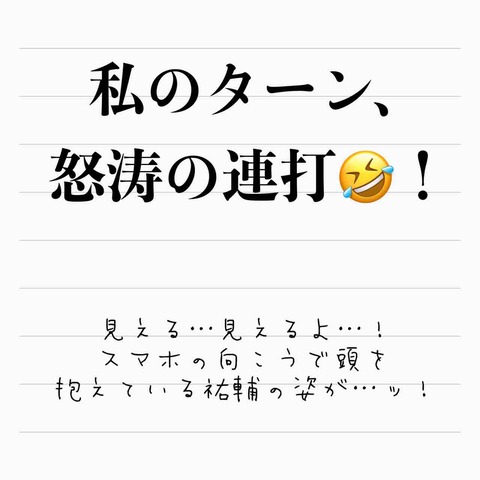 私のターン、
怒涛の連打🤣！
見える…見えるよ…！
スマホの向こうで頭を
抱えている祐輔の姿が…ッ！